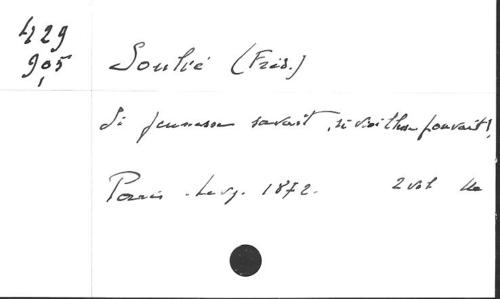 429
905
Soulié (Fréd.)
Si jeunesse savait, si vieillesse pouvait!
Paris. Levy. 1872. 2 vol